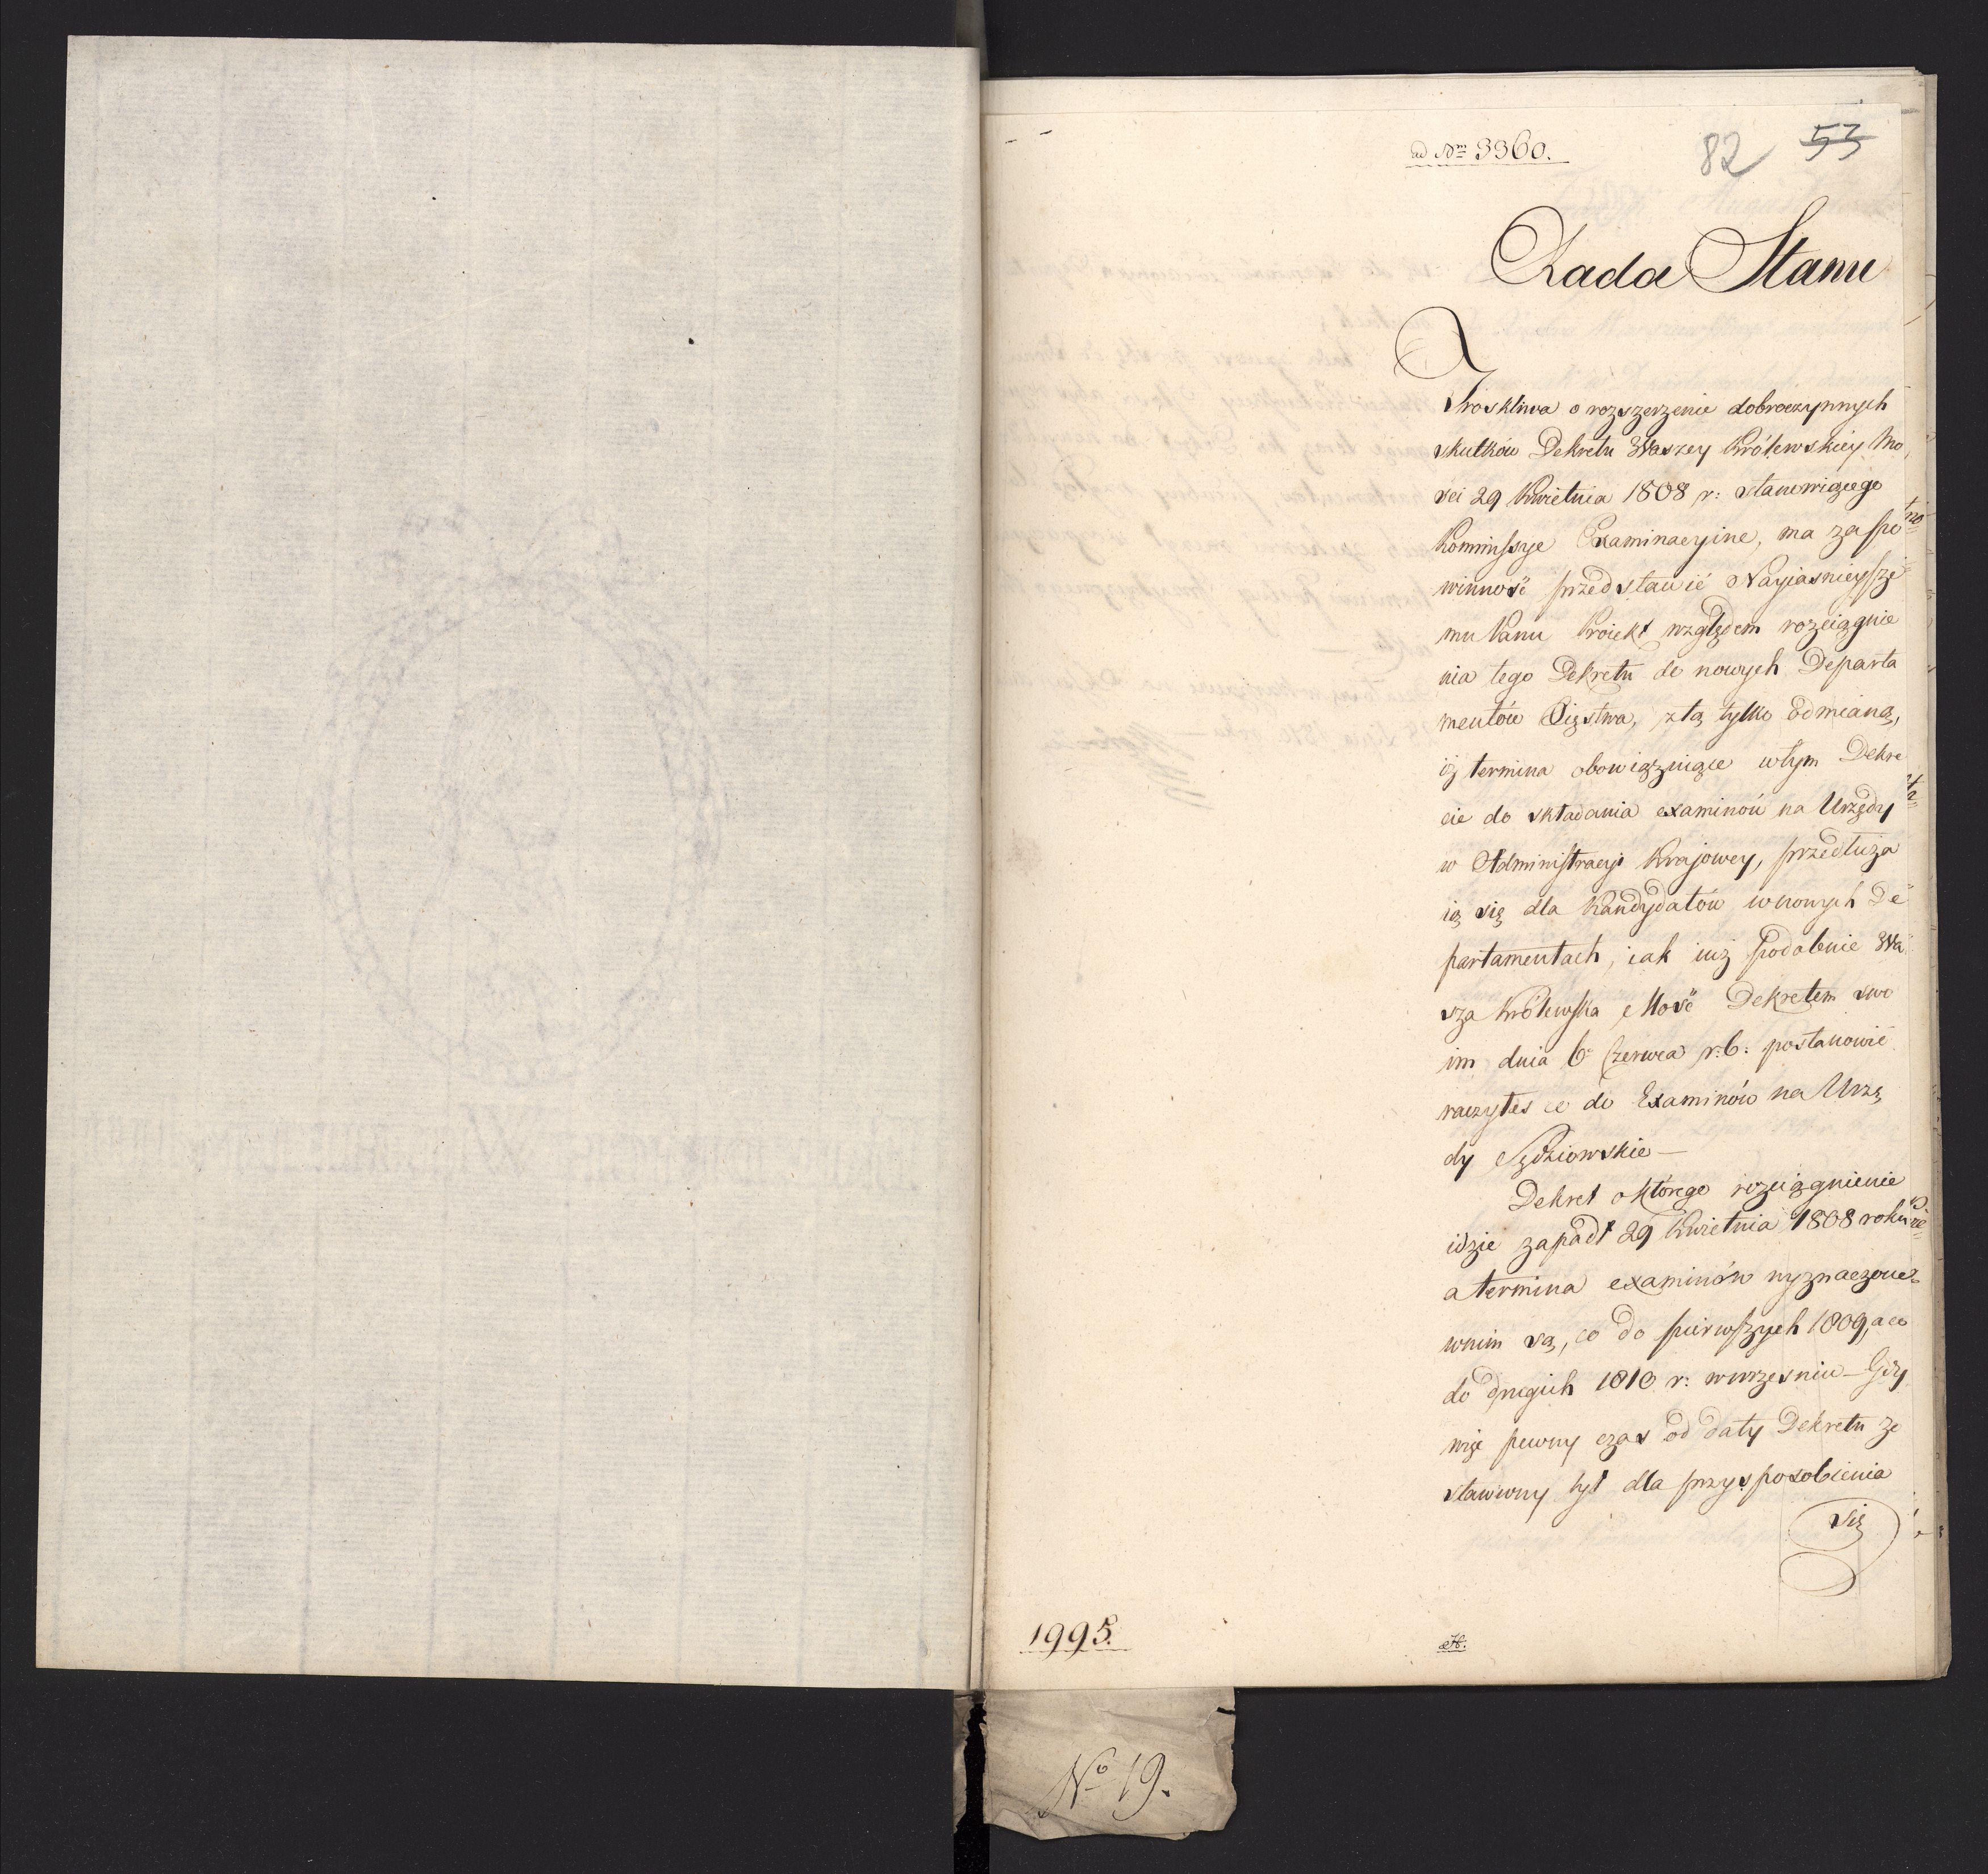 ad Nrm 3360.
82 53
Rada Stanu
Troskliwa o rozszerzenie dobroczynnych
skutków Dekretu Waszey Królewskiéy Mo
sci 29 Kwietnia 1808 r: stanowiącego
Kommissye Examinacyine, ma za po
winność przedstawić Nayiasnieysze
mu Panu Proiekt względem rozciągnie
nia tego Dekretu do nowych Departa
mentów Xięstwa, z tą tylko odmianą,
iż termina obowiązuiące w tym Dekre
cie do składania examinów na Urzędy
w Administracyi Krajowey, przedłuża
ią się dla Kandydatów w nowych De
partamentach, iak iuż podobnie Wa
sza Królewska Mość Dekretem swo
im dnia 6 Czerwca r: b: postanowić
raczyłeś co do Examinów na Urzę
dy Sędziowskie —
Dekret o którego rozciągnienie
idzie zapadł 29 Kwietnia 1808 roku
a termina examinów wyznaczone
w nim są, co do pierwszych 1809, a co
do drugich 1810 r: w wrzesniu — Gdy
więc pewny czas od daty Dekretu zo
stawiony był dla przysposobienia
się
1995.
No 19.